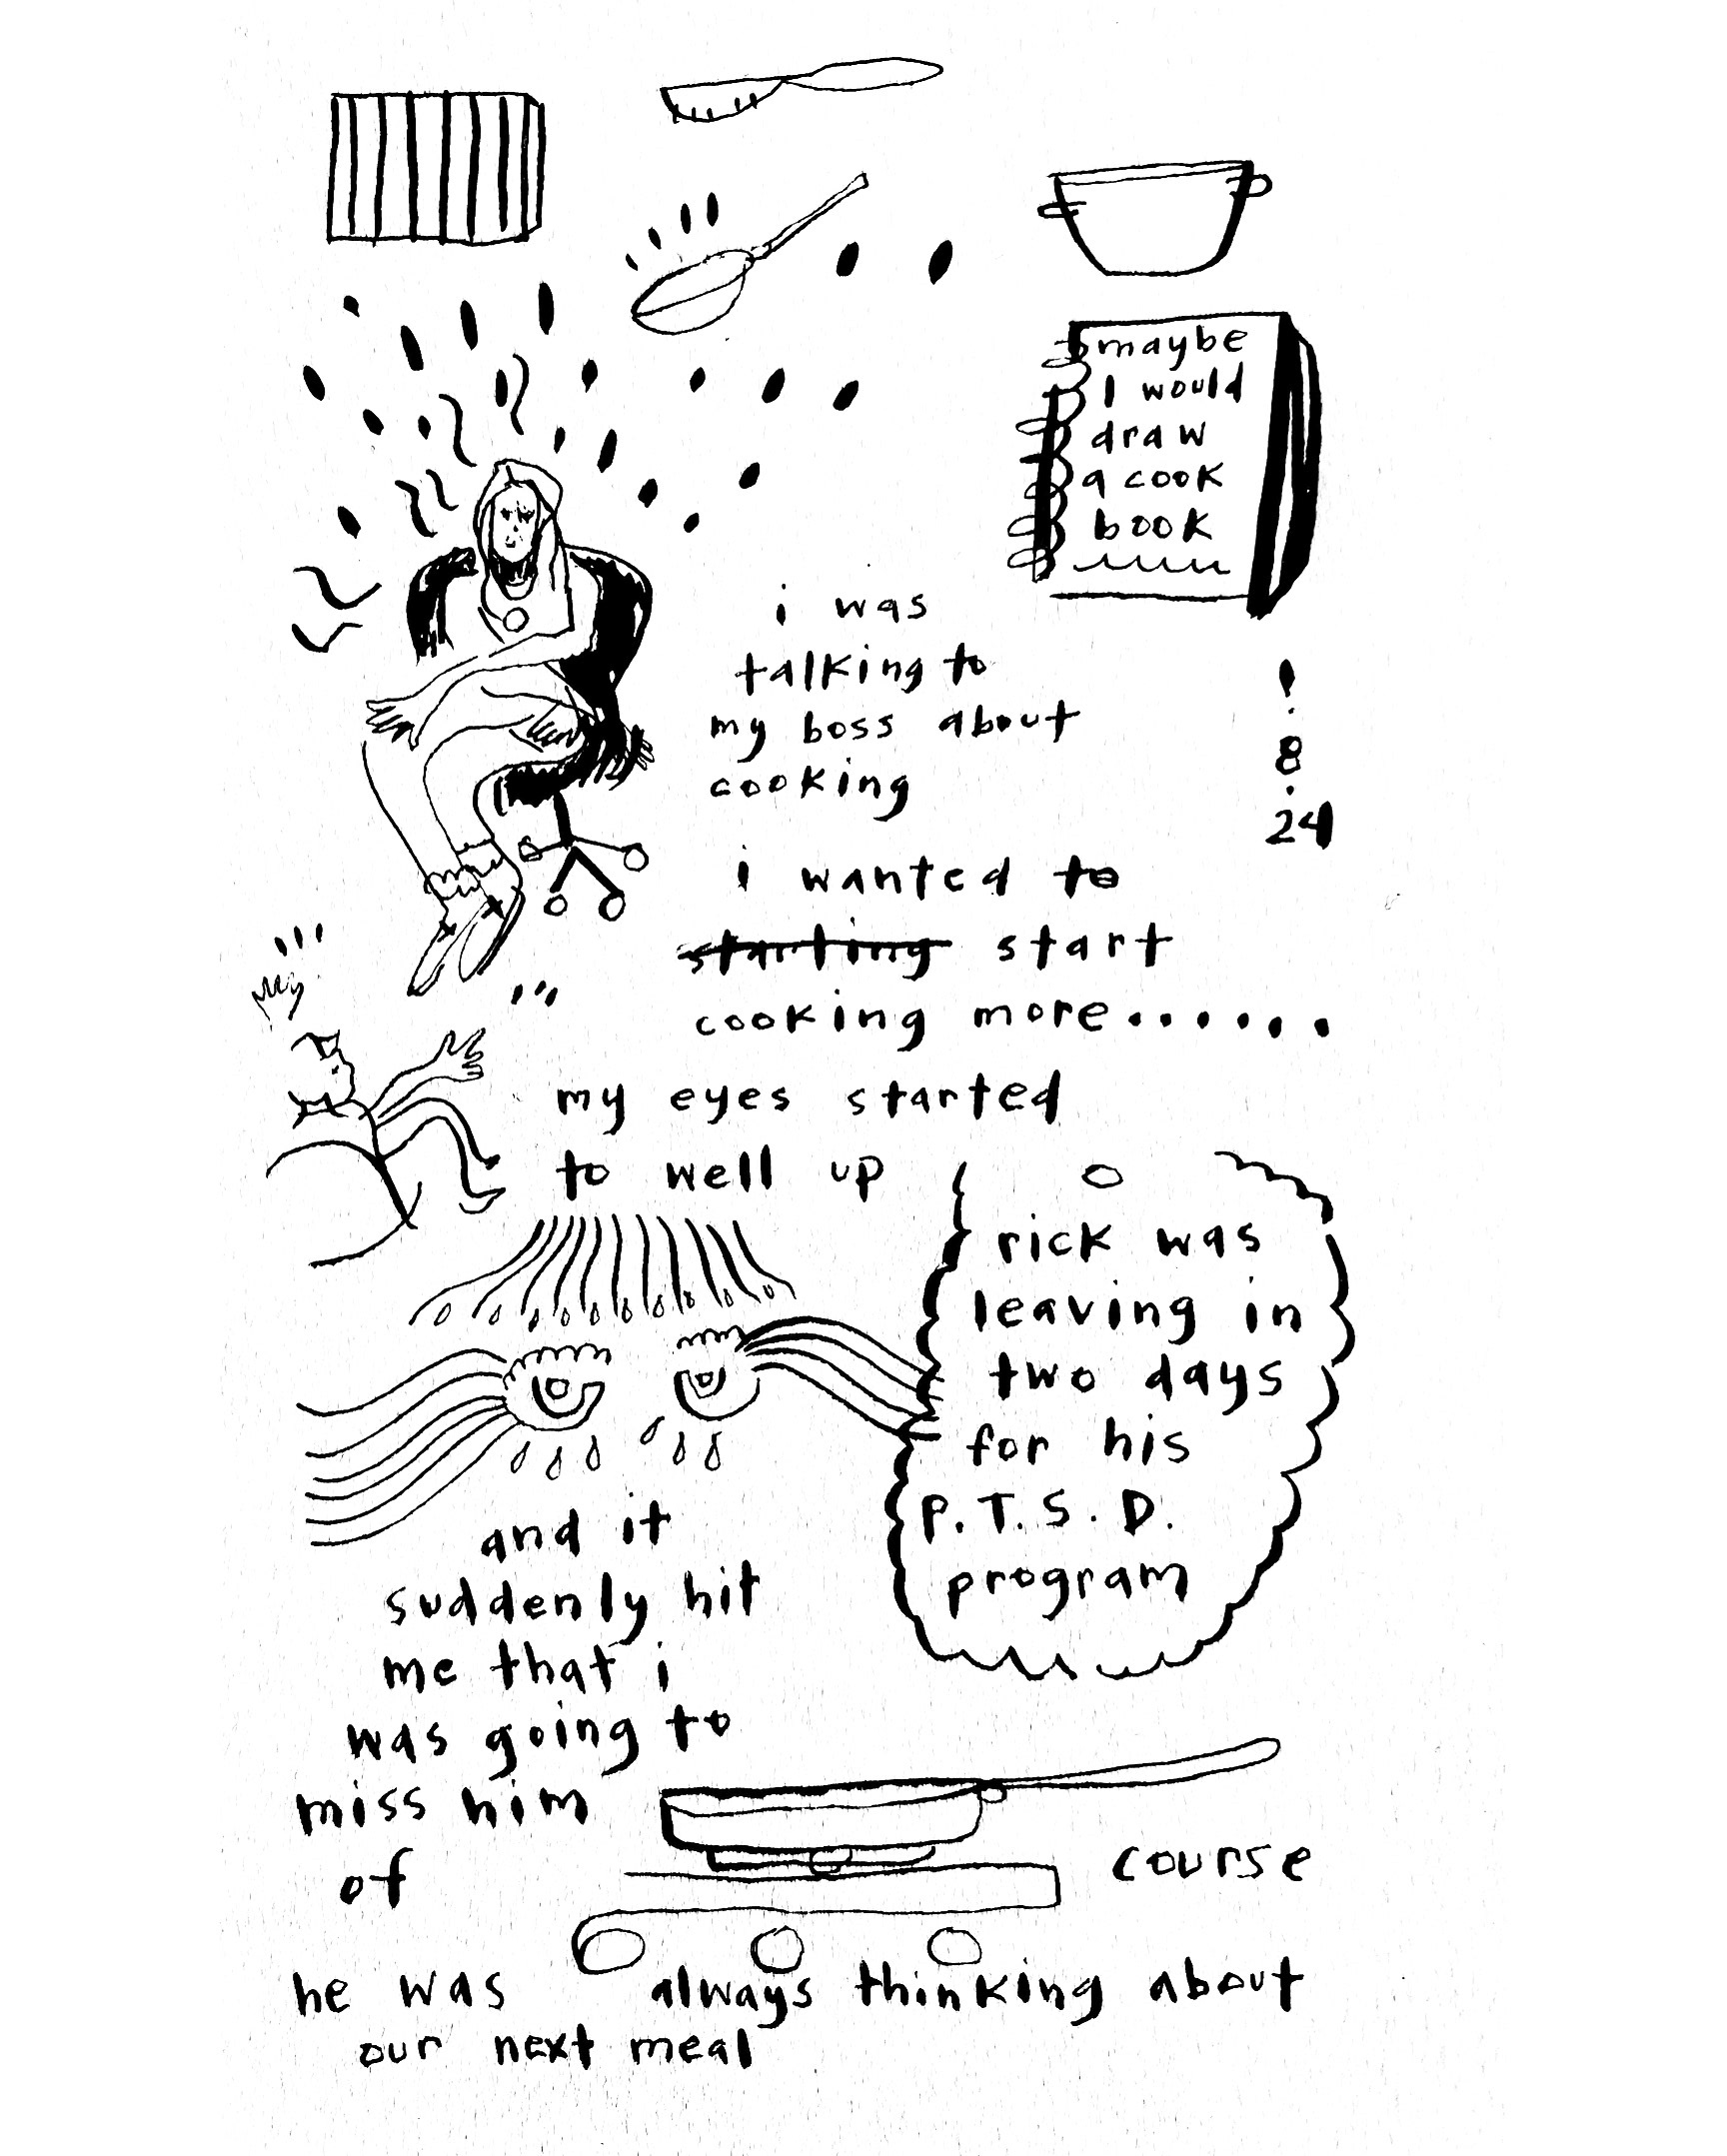 maybe
I would
draw
a cook
book
i was
talking to
my boss about
cooking
!
8
.
24
i wanted to
starting start
cooking more.......
my eyes started
to well up
rick was
leaving in
two days
for his
P.T.S.D.
program
and it
suddenly hit
me that i
was going to
miss him
of course
he was always thinking about
our next meal